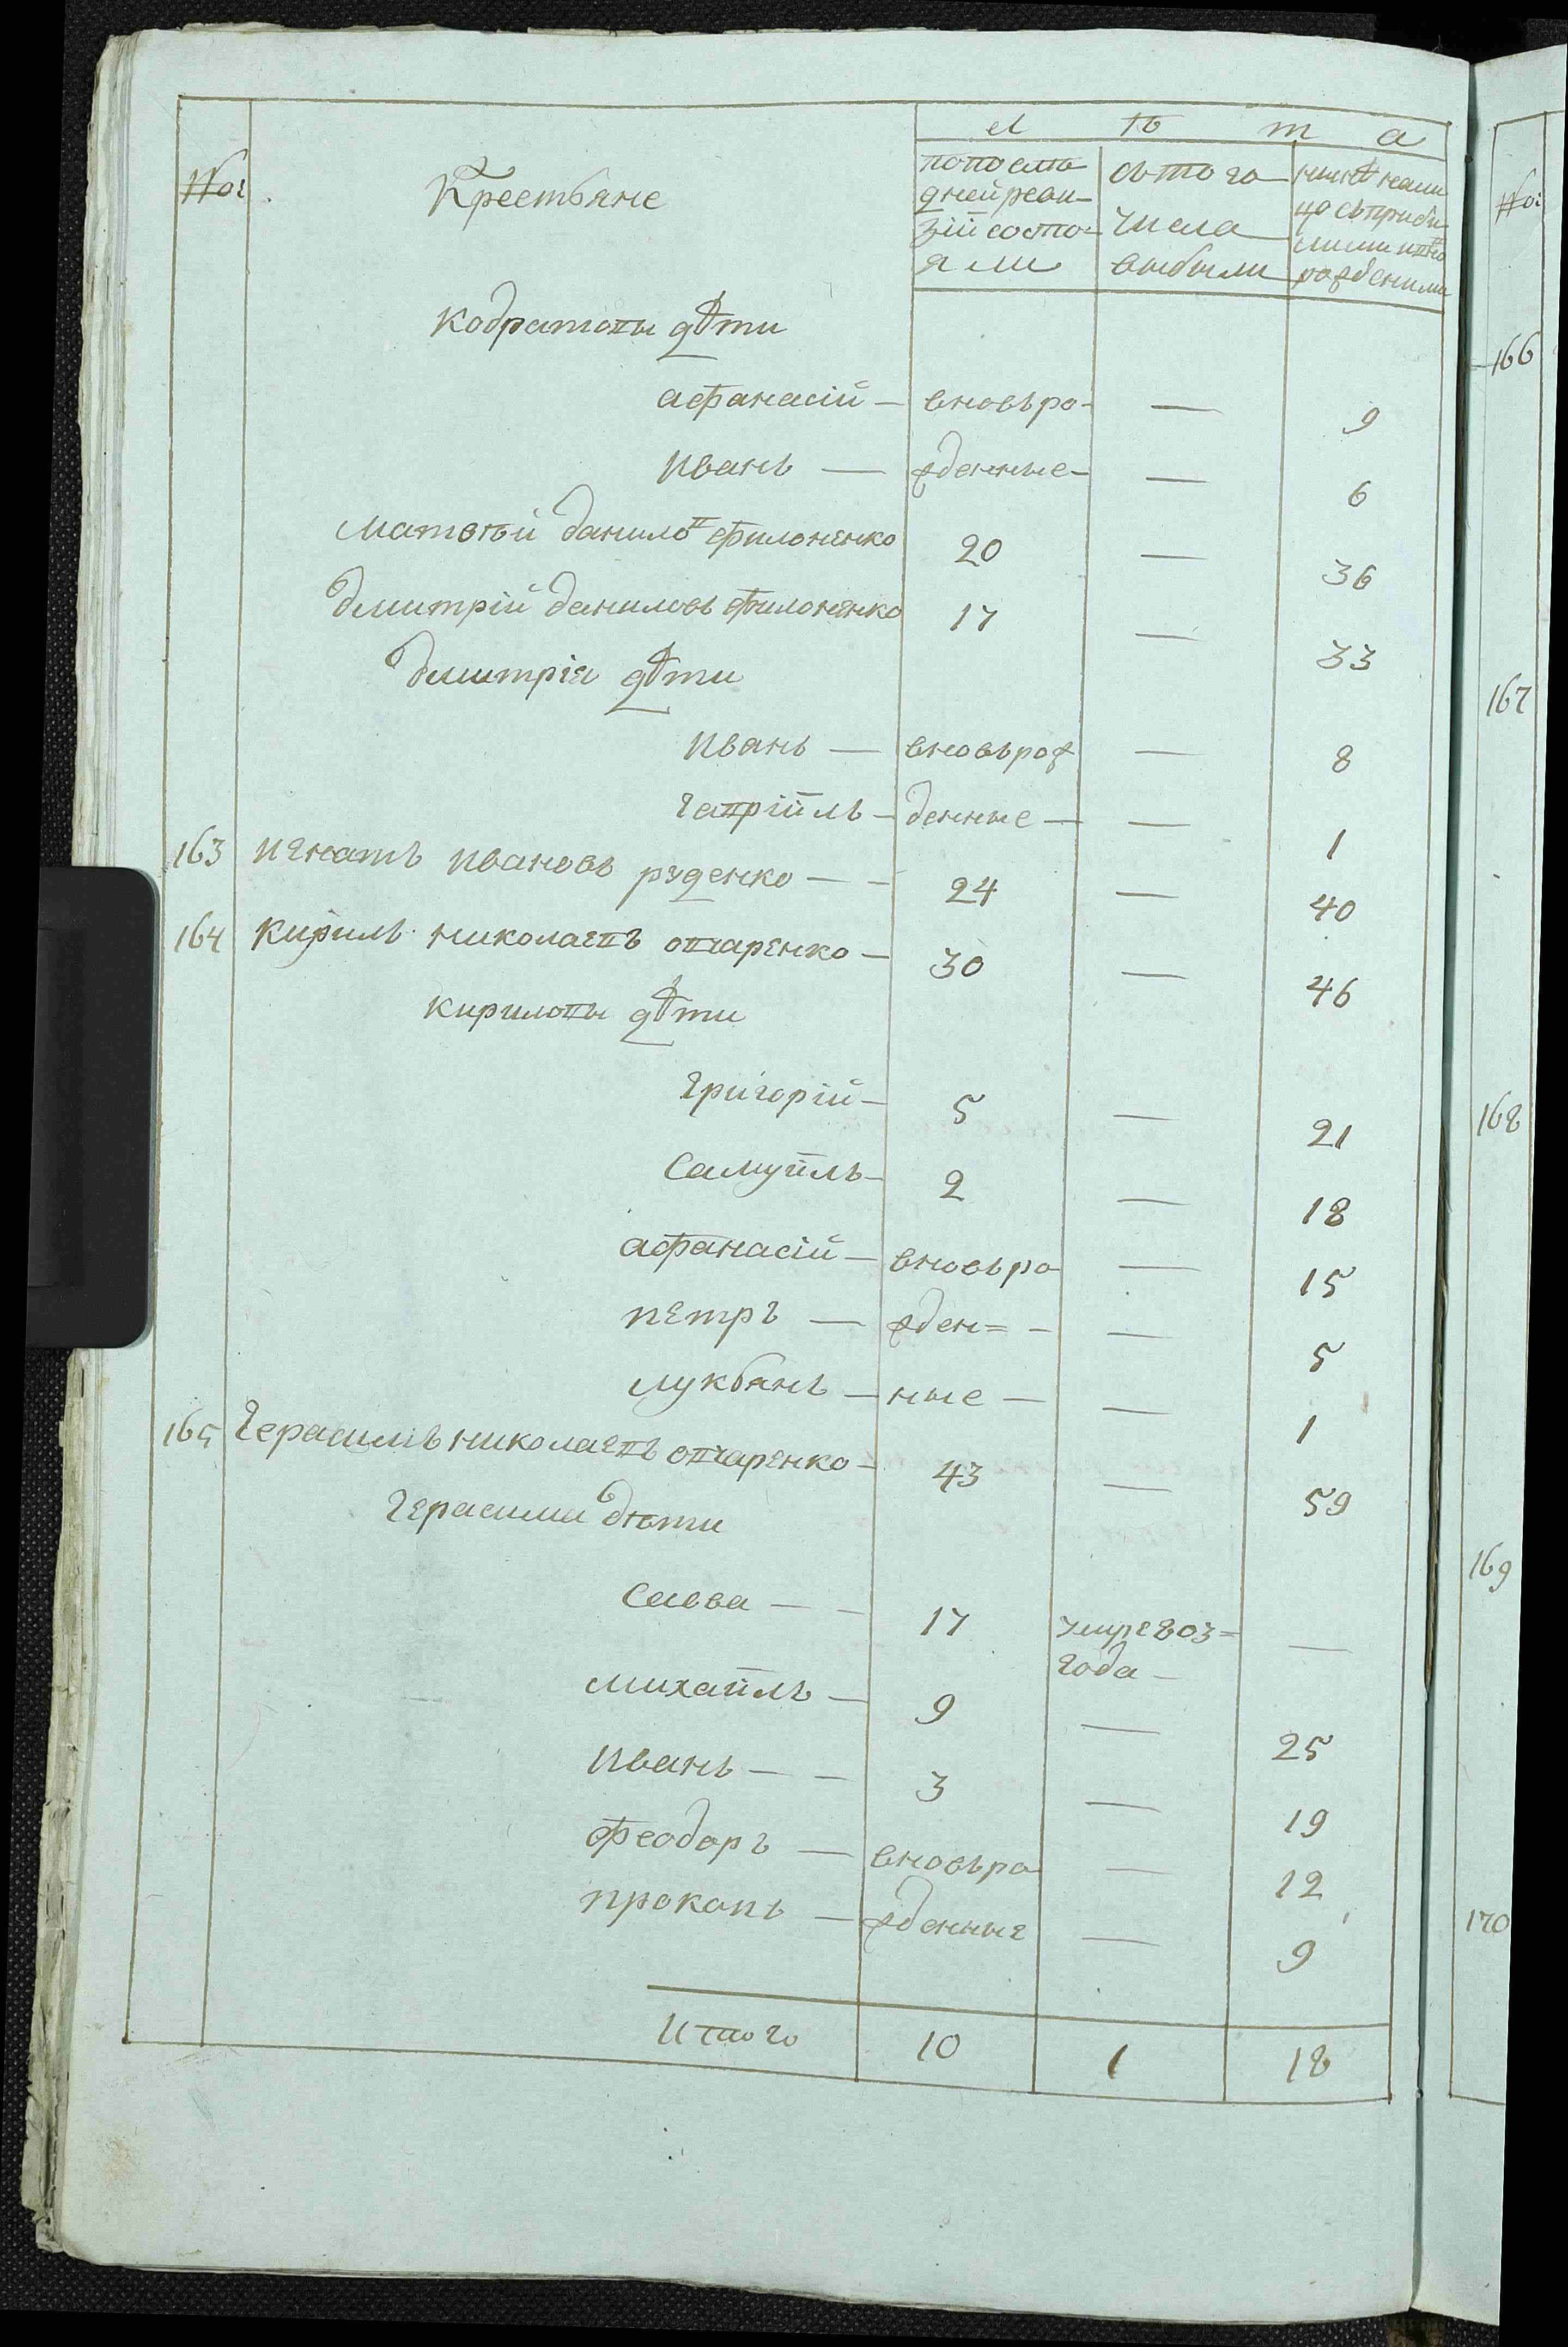 №: Крестьяне л ѣ т а
по после дней реви- зiй состо- яли | съ того числа выбыли | нынѣ на ли цо съ прибы лыми и но рожденими
кодратовы дѣти
афанасiй — вновь ро- — 9
иванъ — жденные — — 6
матвѣй данилов филоненко 20 — 36
дмитрiй даниловъ филоненко 17 — 33
дмитрiя дѣти
иванъ — вновь рож — 8
гаврiилъ — денные — — 1
163 игнатъ ивановъ руденко — — 24 — 40
164 кирилъ николаевъ овчаренко — 30 — 46
кириловы дѣти
григорiй — 5 — 21
самуилъ — 2 — 18
афанасiй — вновь ро — 15
петръ — жден= — — 5
лукьянъ — ные — — 1
165 герасимъ николаевъ овчаренко — 43 — 59
герасима дѣти
савва — — 17 умре 803= —
года —
михаилъ — 9 — 25
иванъ — — 3 — 19
феодоръ — вновь ро — 12
прокопъ — жденные — 9
итого 10 1 18
№:
166
167
168
169
170